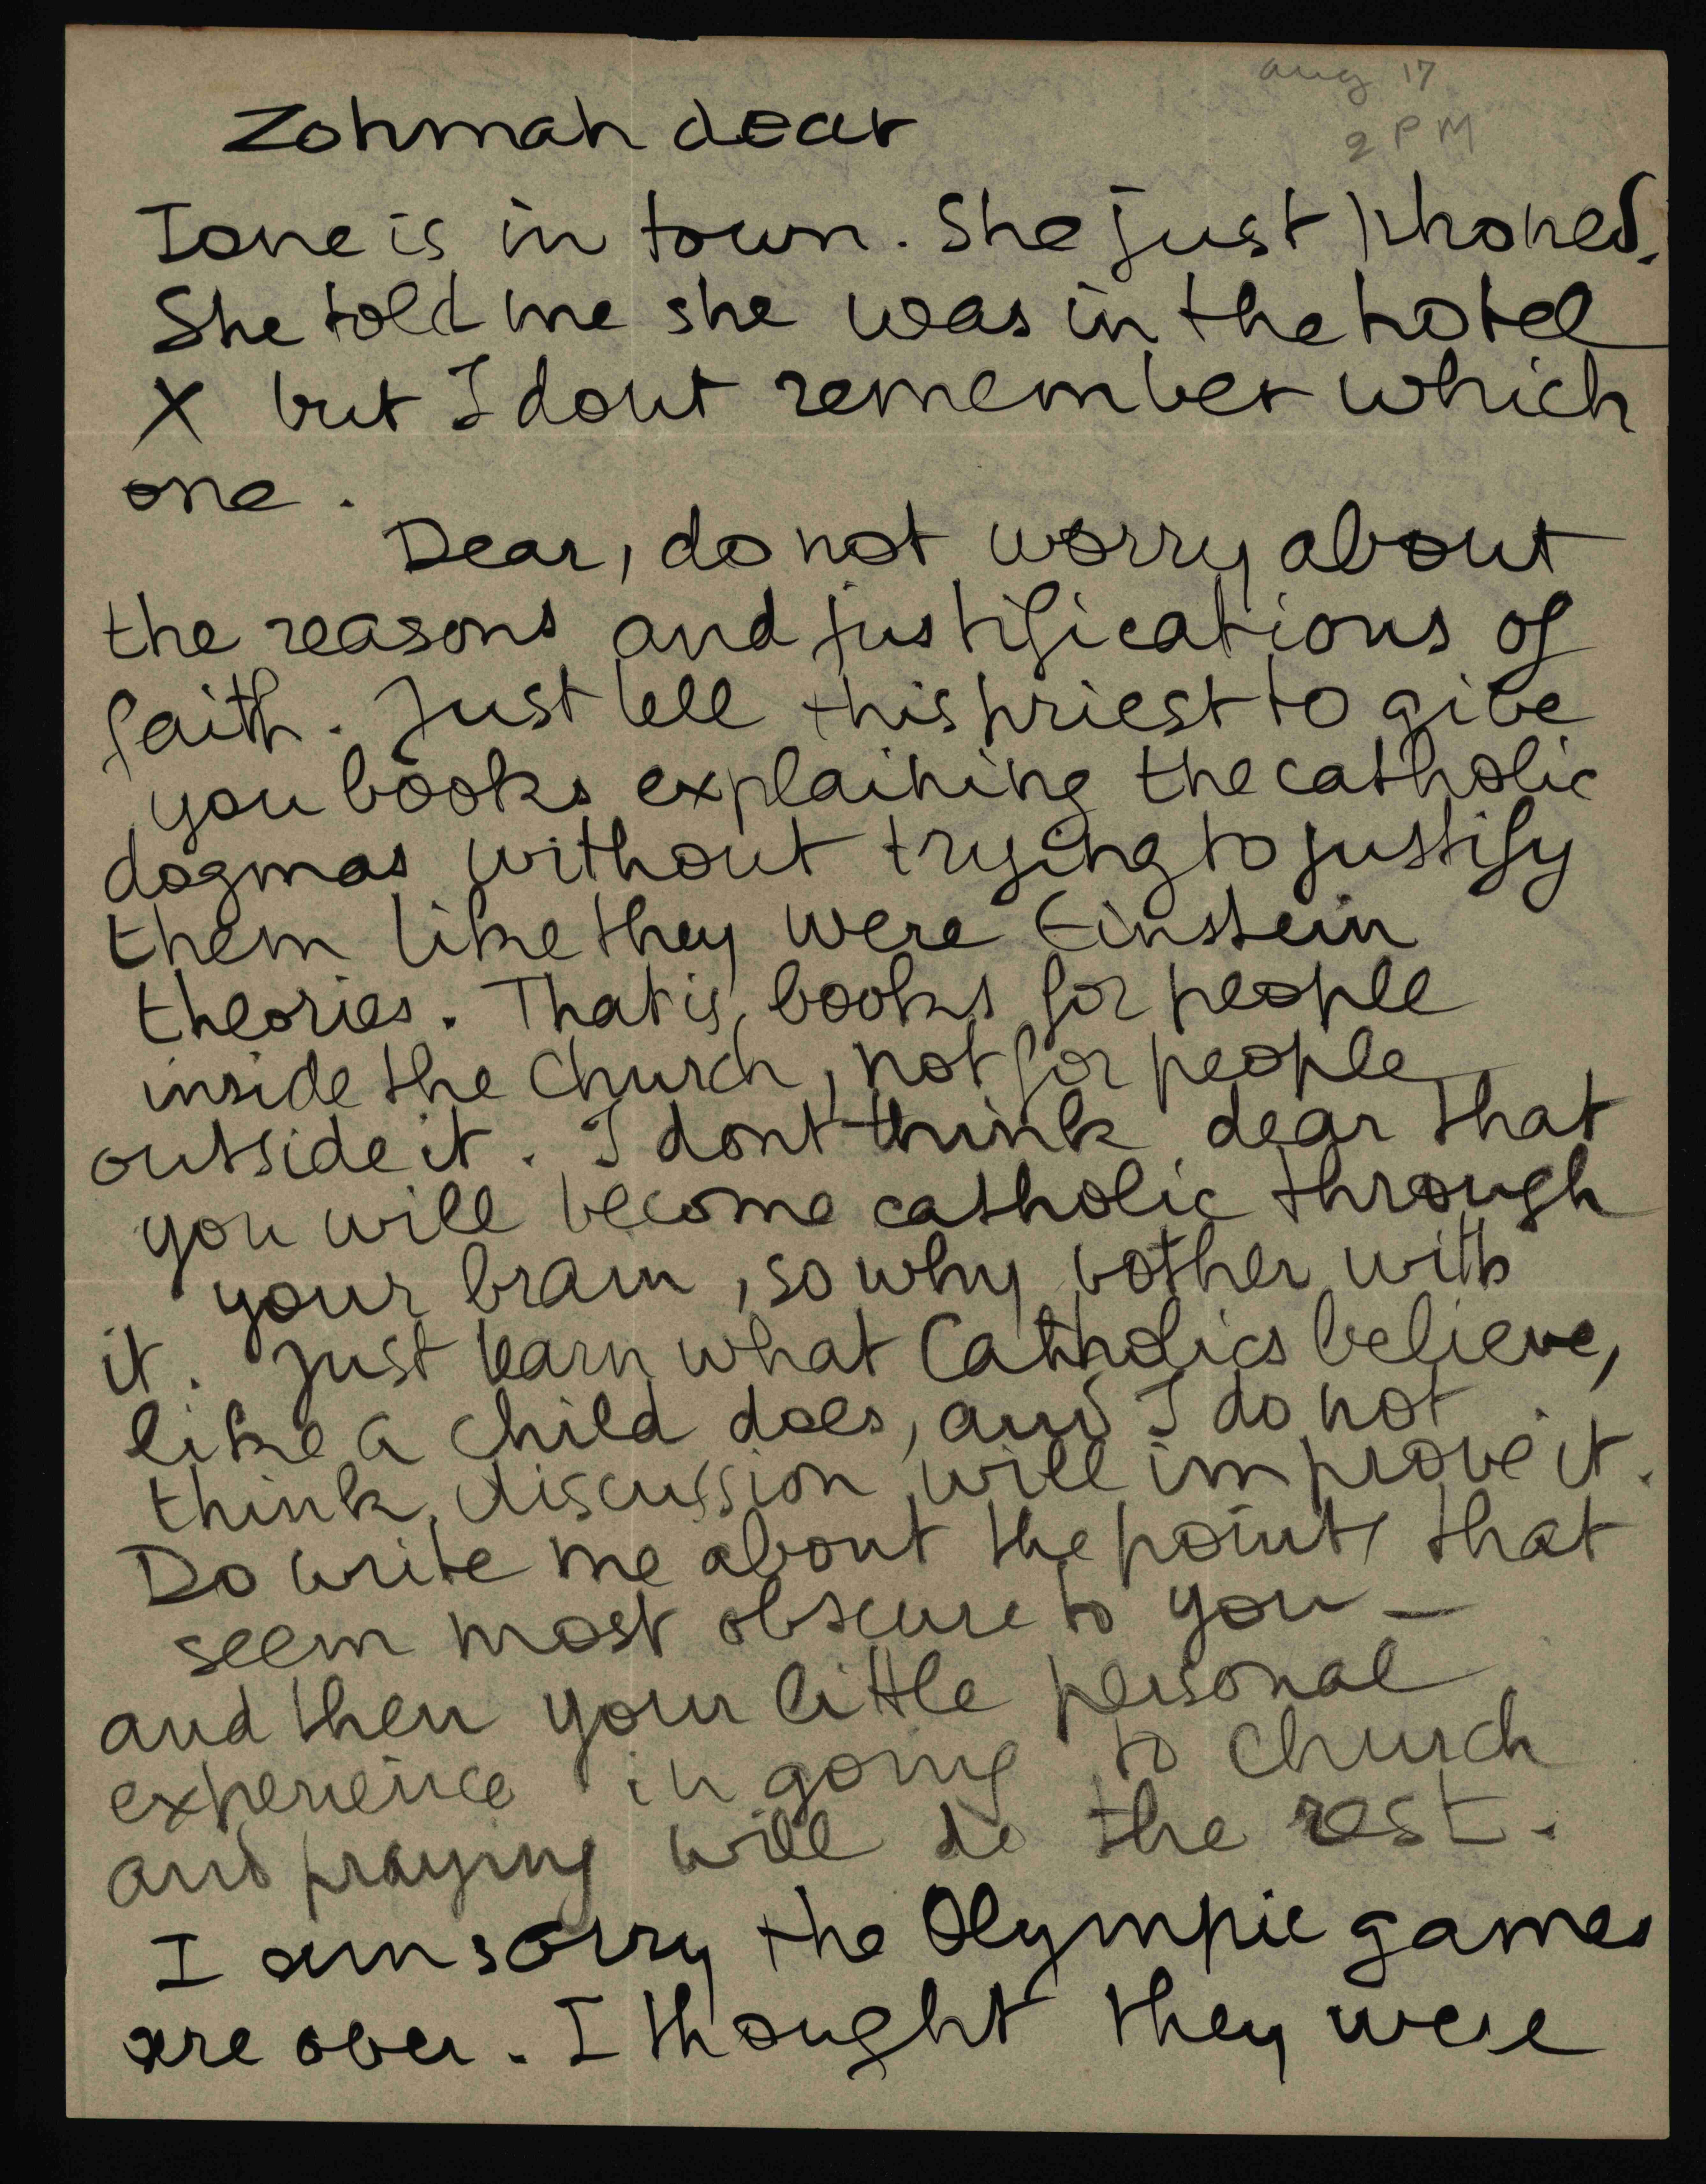 aug 17
2 PM
Zohmah dear
Ione is in town. She just phoned.
She told me she was in the hotel
X but I dont remember which
one.
Dear, do not worry about
the reasons and justifications of
faith. Just tell this priest to give
you books explaining the catholic
dogmas without trying to justify
them like they were Einstein
theories. That is, books for people
inside the Church, not for people
outside it. I dont think dear that
you will become catholic through
your brain, so why bother with
it. Just learn what Catholics believe,
like a child does, and I do not
think discussion will improve it.
Do write me about the points that
seem most obscure to you —
and then your little personal
experience in going to church
and praying will do the rest.
I am sorry the Olympic games
are over. I thought they were